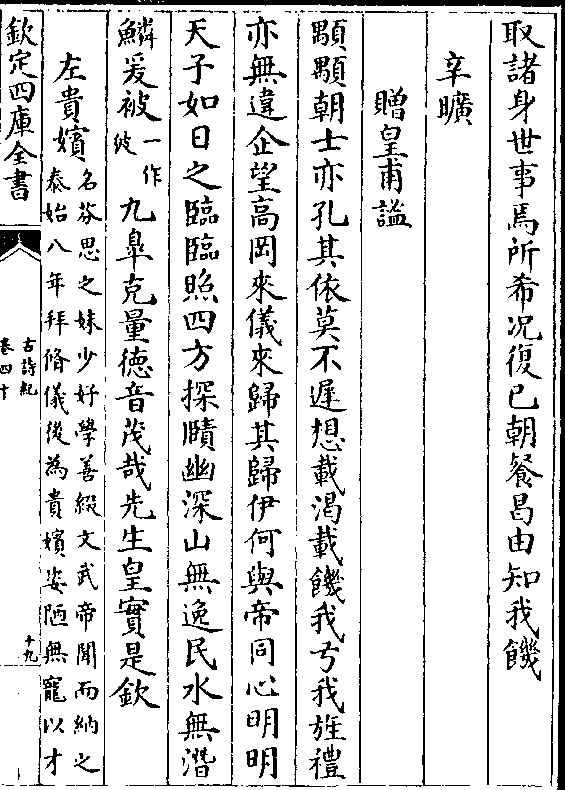 取諸身世事焉所希况復已朝餐曷由知我饑
辛曠
贈皇甫謐
顒顒朝士亦孔其依莫不遲想載渴載饑我弓我旌禮
亦無違企望高岡來儀來歸其歸伊何與帝同心明明
天子如日之臨臨照四方探賾幽深山無逸民水無潛
鱗爰被一作彼九臯克量德音茂哉先生皇實是欽
左貴嬪名芬思之妹少好學善綴文武帝聞而納之
泰始八年拜脩儀後為貴嬪姿陋無寵以才
欽定四庫全書
古詩紀
卷四十
十九